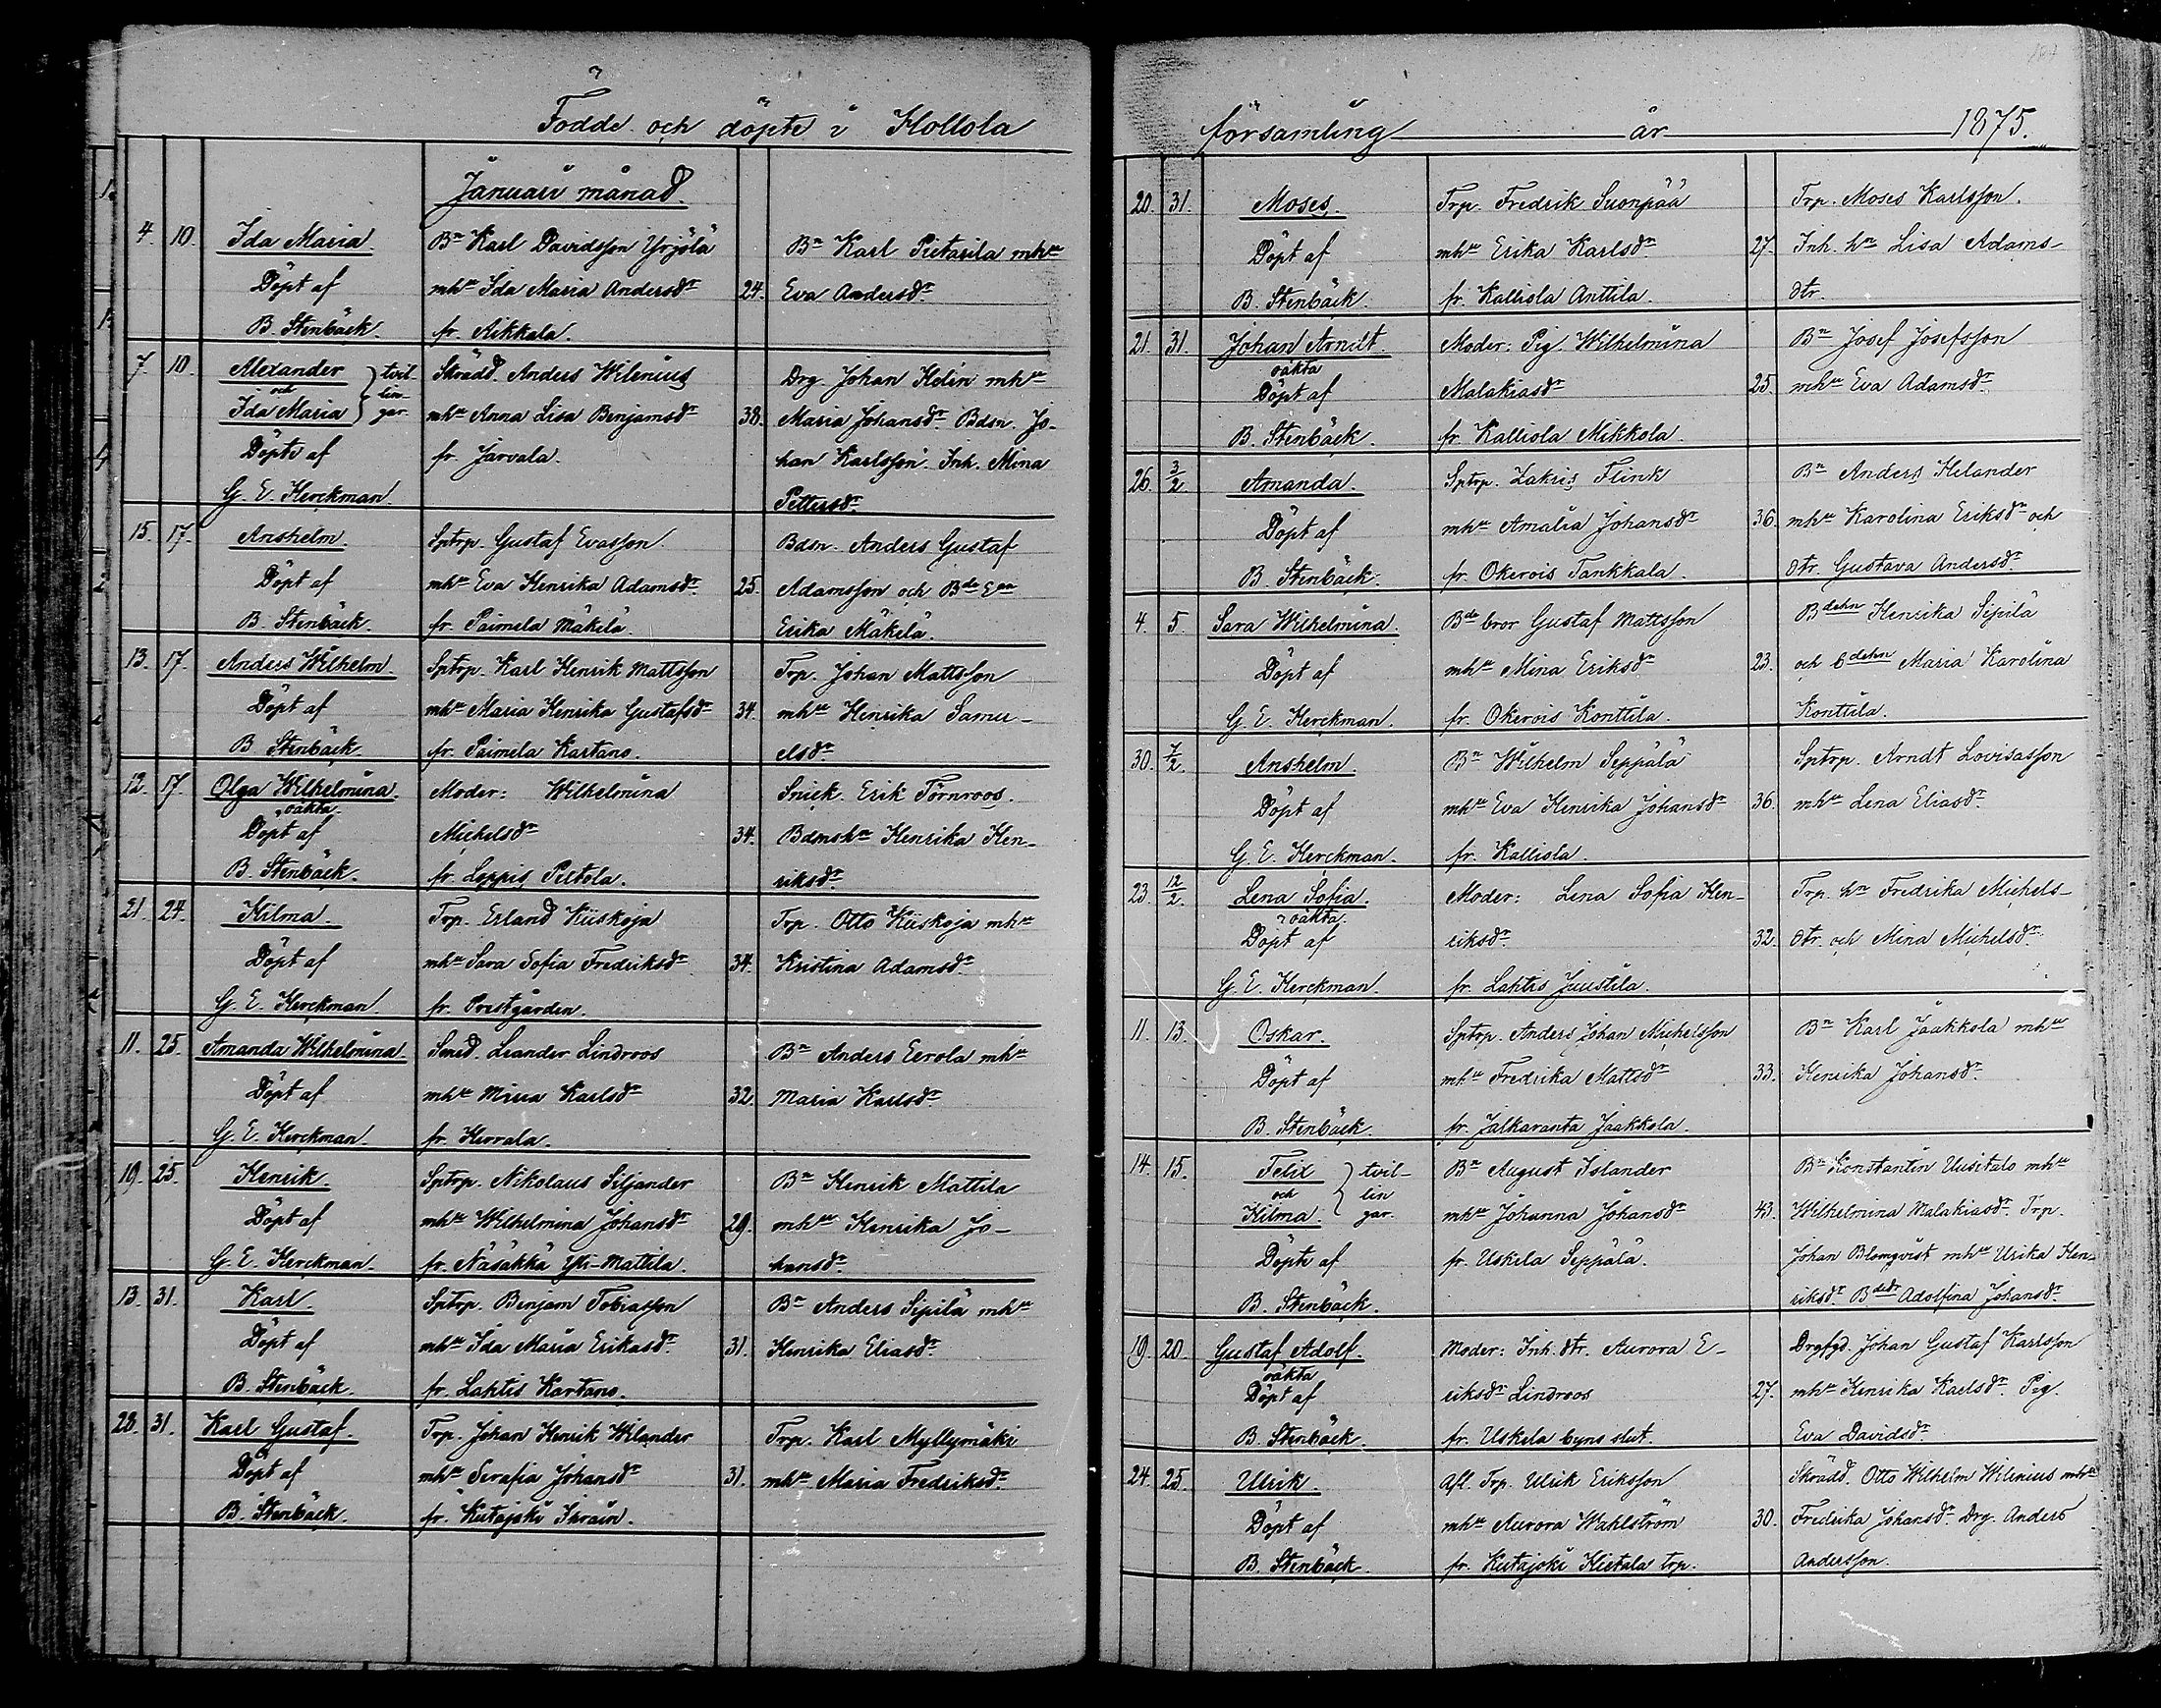 Födde och döpte i Hollola
Januari månad.
4. 10. Ida Maria. Bn Karl Davidsson Yrjölä Bn Karl Pietarila mhu
Döpt af mhu Ida Maria Andersdr 24. Eva Andersdr
B. Stenbäck. fr. Kikkala.
7. 10. Alexander tvil- Skrädd. Anders Wilenius Drg. Johan Helin mhu
och lin-
Ida Maria gar. mhu Anna Lisa Benjamsdr 38. Maria Johansdr Bdsn. Jo-
Döpte af fr. Jarvala. han Karlsson. Inh. Mina
G. E. Herckman. Pettersdr
15. 17. Anshelm. Sptrp. Gustaf Evasson. Bdsn. Anders Gustaf
Döpt af mhu Eva Henrika Adamsdr 25. Adamsson och Bde Ean
B. Stenbäck. fr. Paimela Mäkilä. Erika Mäkelä.
13. 17. Anders Wilhelm. Sptrp. Karl Henrik Mattsson Trp. Johan Mattsson
Döpt af mhu Maria Henrika Gustafsdr 34. mhu Henrika Samu-
B. Stenbäck. fr. Paimela Kartano. elsdr
12. 17. Olga Wilhelmina. Moder: Wilhelmina Sniek. Erik Törnroos.
oäkta.
Döpt af Michelsdr 34. Bdmshu Henrika Hen-
B. Stenbäck. fr. Loppis Peltola. riksdr
21. 24. Hilma. Trp. Erland Kiiskoja Trp. Otto Kiiskoja mhu
Döpt af mhu Sara Sofia Fredriksdr 34. Kristina Adamsdr
G. E. Herckman. fr. Prestgården.
11. 25. Amanda Wilhelmina Smed. Leander Lindroos Bn Anders Eerola mhu
Döpt af mhu Miina Karlsdr 32. Maria Karlsdr
G. E. Herckman. fr. Hervala.
19. 25. Henrik. Sptrp. Nikolaus Siljander Bn Henrik Mattila
Döpt af mhu Wilhelmina Johansdr 29. mhu Henrika Jo-
G. E. Herckman. fr. Näsäkkä Yli-Mattila. hansdr
13. 31. Karl. Sptrp. Benjam Tobiasson Bn Anders Sipilä mhu
Döpt af mhu Ida Maria Erikasdr 31. Henrika Eliasdr
B. Stenbäck. fr. Lahtis Kartano.
28. 31. Karl Gustaf. Trp. Johan Henrik Wilander Trp. Karl Myllymäki
Döpt af mhu Serafia Johansdr 31. mhu Maria Fredriksdr
B. Stenbäck. fr. Kutajoki Ihrain.
församling år 1875.
20. 31. Moses. Trp. Fredrik Suonpää Trp. Moses Karlsson.
Döpt af mhu Erika Karlsdr 27. Inh. hu Lisa Adams-
B. Stenbäck. fr. Kalliola Anttila. dtr.
21. 31. Johan Arndt. Moder: Pig. Wilhelmina Bn Josef Josefsson
oäkta
Döpt af Malakiasdr 25. mhu Eva Adamsdr
B. Stenbäck. fr. Kalliola Mikkola.
26. 3/2. Amanda. Sptrp. Zakris Flink Bn Anders Helander
Döpt af mhu Amalia Johansdr 36. mhu Karolina Eriksdr och
B. Stenbäck. fr. Okerois Tankkala. dtr. Gustava Andersdr
4. 5. Sara Wilhelmina. Bde bror Gustaf Mattsson Bdehn Henrika Sipilä
Döpt af mhu Mina Eriksdr 23. och bdehn Maria Karolina
G. E. Herckman. fr. Okerois Konttila. Konttila.
30. 7/2. Anshelm. Bn Wilhelm Seppälä Sptrp. Arndt Lovisasson
Döpt af mhu Eva Henrika Johansdr 36. mhu Lena Eliasdr
G. E. Herckman. fr. Kalliola.
23. 12/2. Lena Sofia. Moder: Lena Sofia Hen- Trp. hu Fredrika Michels-
oäkta.
Döpt af riksdr 32. dtr. och Mina Michelsdr
G. E. Herckman. fr. Lahtis Juustila.
11. 13. Oskar. Sptrp. Anders Johan Michelsson Bn Karl Jaakkola mhu
Döpt af mhu Fredrika Mattsdr 33. Henrika Johansdr
B. Stenbäck. fr. Jalkaranta Jaakkola.
14. 15. Felix tvil- Bn August Islander Bn Konstantin Uusitalo mhu
och lin
Hilma. gar. mhu Johanna Johansdr 43. Wilhelmina Malakiasdr. Trp.
Döpte af fr. Uskila Seppälä. Johan Blomqvist mhu Ulrika Hen-
B. Stenbäck. riksdr Bdedr Adolfina Johansdr
19. 20. Gustaf Adolf. Moder: Inh. dtr. Aurora E- Drgfgd. Johan Gustaf Karlsson
oäkta
Döpt af riksdr Lindroos 27. mhu Henrika Karlsdr. Pig.
B. Stenbäck. fr. Uskila byns slut. Eva Davidsdr
24. 25. Ulrik. Afl. Trp. Ulrik Eriksson Skrädd. Otto Wilhelm Wilenius mhu
Döpt af mhu Aurora Wahlström 30. Fredrika Johansdr Drg. Anders
B. Stenbäck. fr. Kutajoki Hietala trp. Andersson.